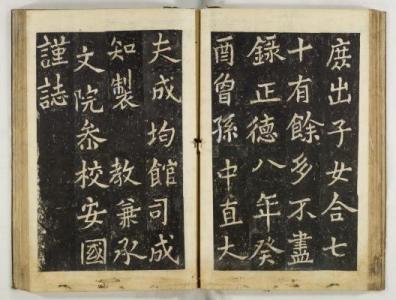 庶出子女合七
十有餘多不盡
錄正德八年癸
酉曾孫中直大
夫成均館司成
知製 教兼承
文院叅校安國
謹誌